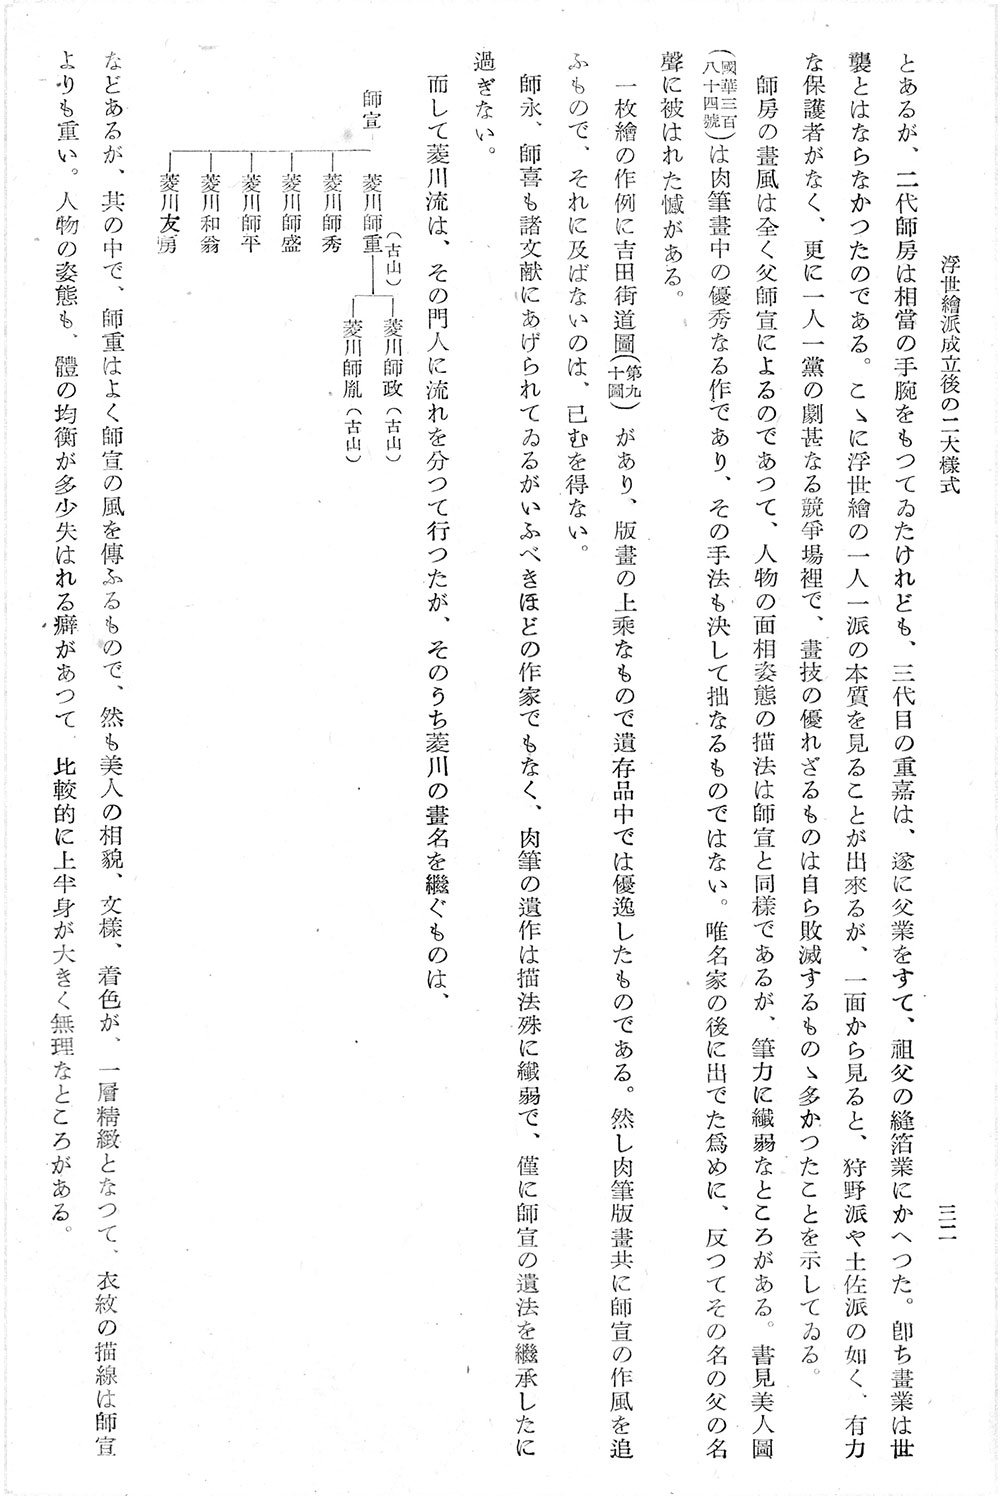 浮世繪派成立後の二大樣式
三二
とあるが、二代師房は相當の手腕をもつてゐたけれども、三代目の重嘉は、遂に父業をすて、祖父の縫箔業にかへつた。卽ち畫業は世
襲とはならなかつたのである。こゝに浮世繪の一人一派の本質を見ることが出來るが、一面から見ると、狩野派や土佐派の如く、有力
な保護者がなく、更に一人一黨の劇甚なる競爭場裡で、畫技の優れざるものは自ら敗滅するものゝ多かつたことを示してゐる。
師房の畫風は全く父師宣によるのであつて、人物の面相姿態の描法は師宣と同樣であるが、筆力に纖弱なところがある。書見美人圖
(國華三百八十四號)は肉筆畫中の優秀なる作であり、その手法も決して拙なるものではない。唯名家の後に出でた爲めに、反つてその名の父の名
聲に被はれた憾がある。
一枚繪の作例に吉田街道圖(第九十圖)があり、版畫の上乘なもので遺存品中では優逸したものである。然し肉筆版畫共に師宣の作風を追
ふもので、それに及ばないのは、已むを得ない。
師永、師喜も諸文献にあげられてゐるがいふべきほどの作家でもなく、肉筆の遺作は描法殊に纖弱で、僅に師宣の遺法を繼承したに
過ぎない。
而して菱川流は、その門人に流れを分つて行つたが、そのうち菱川の畫名を繼ぐものは、
師宣
菱川師重(古山)
菱川師政(古山)
菱川師胤(古山)
菱川師秀
菱川師盛
菱川師平
菱川和翁
菱川友房
などあるが、其の中で、師重はよく師宣の風を傳ふるもので、然も美人の相貌、文樣、着色が、一層精緻となつて、衣紋の描線は師宣
よりも重い。人物の姿態も、體の均衡が多少失はれる癖があつて 比較的に上半身が大きく無理なところがある。